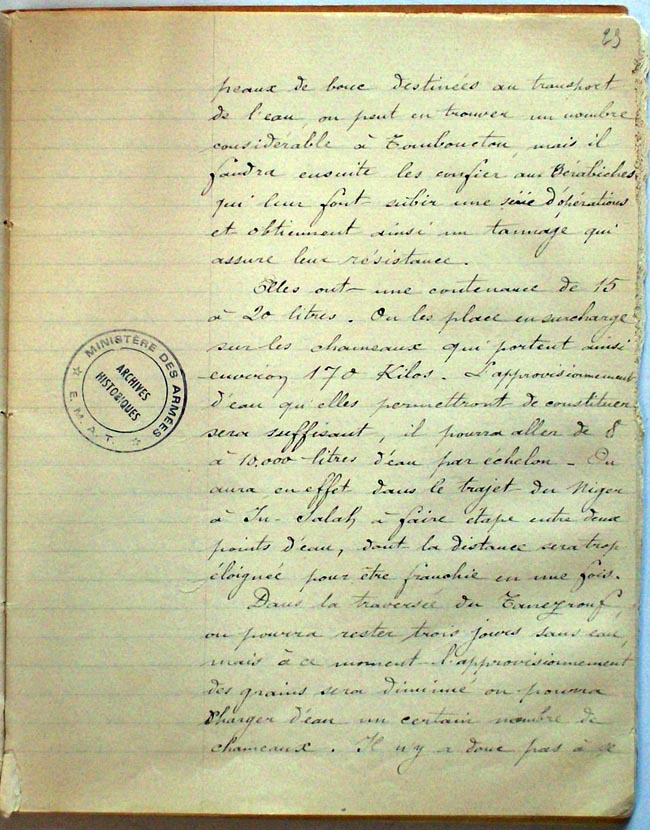 29
peaux de bouc destinées au transport
de l'eau, on peut en trouver un nombre
considérable à Tombouctou, mais il
faudra ensuite les confier aux Bérabiches
qui leur font subir une série d'opérations
et obtiennent ainsi un tannage qui
assure leur résistance.
Elles ont une contenance de 15
à 20 litres. On les place en surcharge
sur les chameaux qui portent ainsi
environ 170 Kilos. L'approvisionnement
d'eau qu'elles permettront de constituer
sera suffisant, il pourra aller de 8
à 10,000 litres d'eau par échelon - On
aura en effet dans le trajet du Niger
à In-Salah, à faire étape entre deux
points d'eau, dont la distance sera trop
éloignée pour être franchie en une fois.
Dans la traversée du Tanezrouf,
on pourra rester trois jours sans eau,
mais à ce moment l'approvisionnement
des grains sera diminué on pourra
charger d'eau un certain nombre de
chameaux. Il n'y a donc pas à se
MINISTÈRE DES ARMÉES
ARCHIVES
HISTORIQUES
E. M. A. T.